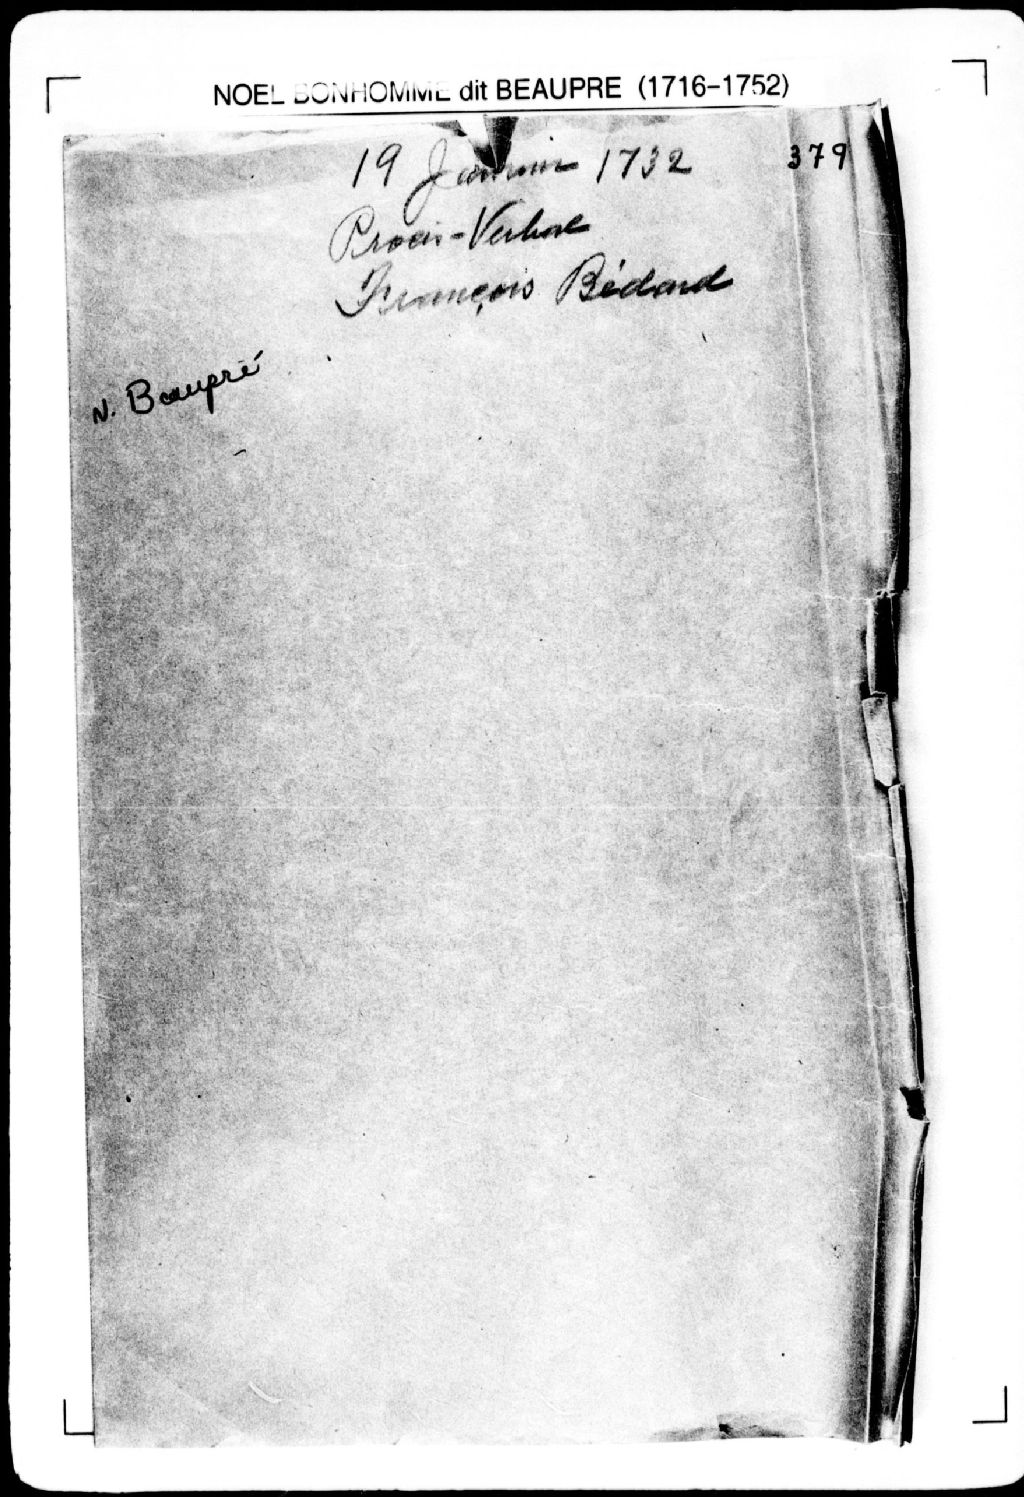 NOEL BONHOMME dit BEAUPRE (1716-1752)
19 Janvier 1732 379
Procès-Verbal
François Bédard
N. Beaupré